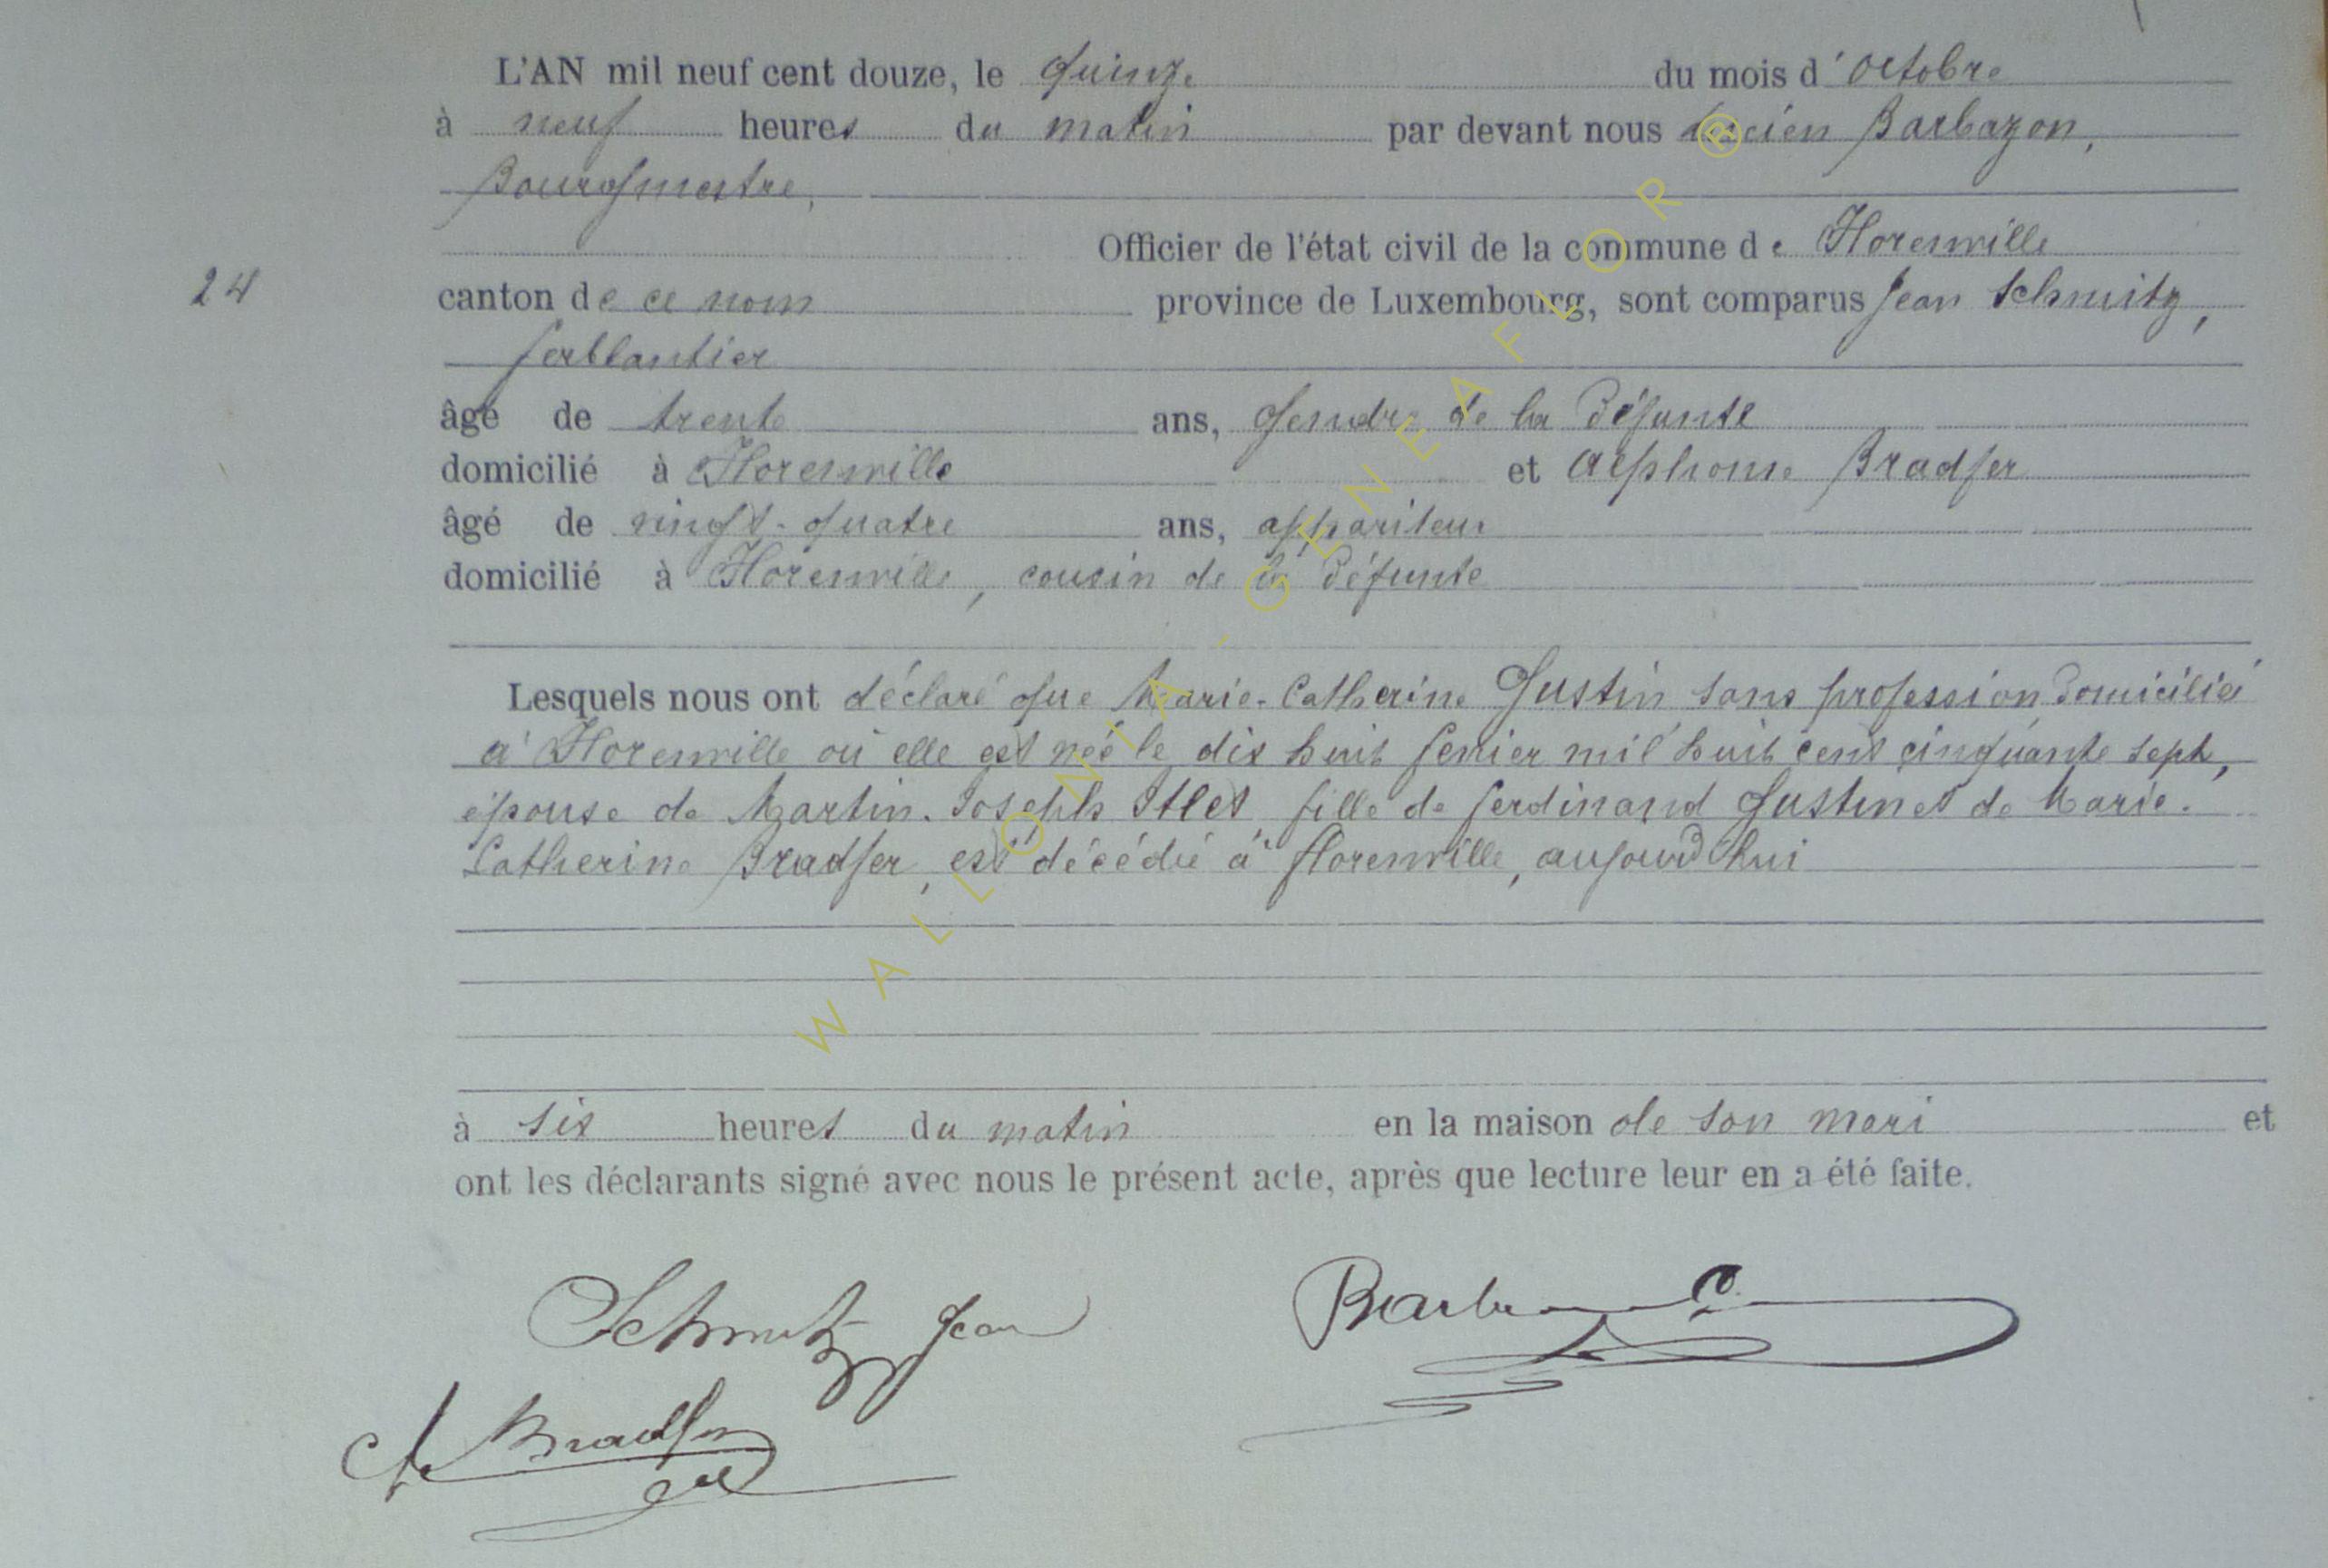 L'AN mil neuf cent douze, le quinze du mois d'octobre
à neuf heures du matin par devant nous Lucien Barbazon,
Bourgmestre,
Officier de l'état civil de la commune de Florenville
24
canton de ce nom province de Luxembourg, sont comparus Jean Schmitz,
ferblantier
âgé de trente ans, gendre de la défunte
domicilié à Florenville et Alphonse Bradfer
âgé de vingt-quatre ans, appariteur
domicilié à Florenville, cousin de la défunte
Lesquels nous ont déclaré que Marie-Catherine Gustin sans profession domiciliée
à Florenville où elle est née le dix huit fevrier mil huit cent cinquante sept,
épouse de Martin-Joseph fille de Ferdinand Gustin et de Marie-
Catherine Bradfer, est décédée à Florenville, aujourd'hui
à six heures du matin en la maison de son mari et
ont les déclarants signé avec nous le présent acte, après que lecture leur en a été faite.
Schmitz Jean
A Bradfer
WALLONIA-GENEAFLOR®